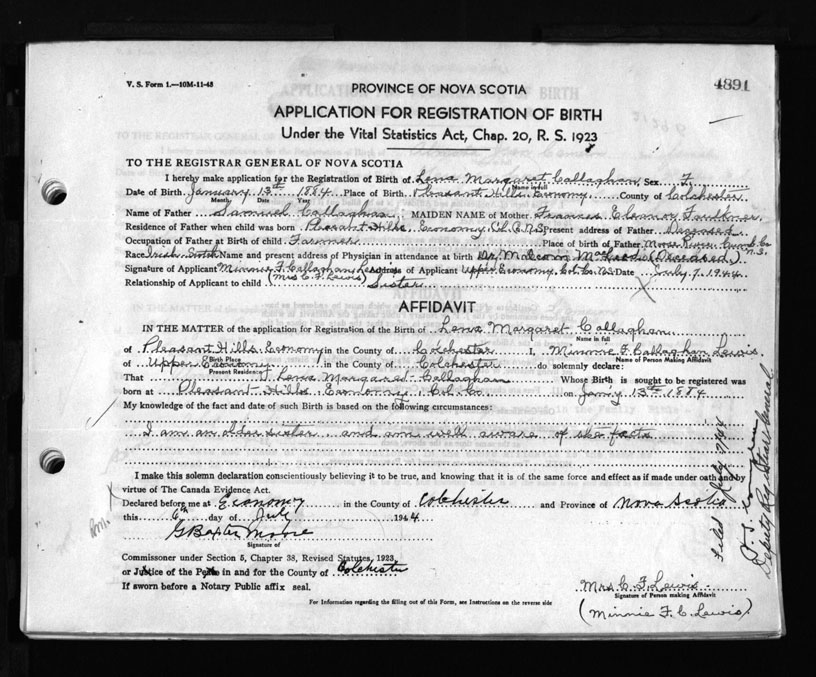 V. S. Form 1.—10M-11-43
4891
PROVINCE OF NOVA SCOTIA
APPLICATION FOR REGISTRATION OF BIRTH
Under the Vital Statistics Act, Chap. 20, R. S. 1923
TO THE REGISTRAR GENERAL OF NOVA SCOTIA
I hereby make application for the Registration of Birth of Lena Margaret Callaghan, Sex F
Name in full
Date of Birth January 13th 1884 Place of Birth Pleasant Hills Economy County of Colchester
Month Date Year
Name of Father Samuel Callaghan MAIDEN NAME of Mother Frances Eleanor Faulkner
Residence of Father when child was born Pleasant Hills, Economy Col. Co. N.S. Present address of Father Deceased
Occupation of Father at Birth of child Farmer Place of birth of Father Moose River Cum. Co. N.S.
Race Irish Scotch Name and present address of Physician in attendance at birth Dr. (Deceased)
Signature of Applicant Minnie F. Callaghan Lewis Address of Applicant Upper Economy, Col. Co. N.S. Date July 7, 1944
(Mrs C. F. Lewis)
Relationship of Applicant to child Sister
AFFIDAVIT
IN THE MATTER of the application for Registration of the Birth of Lena Margaret Callaghan
Name in full
of Pleasant Hills Economy in the County of Colchester I, Minnie F. Callaghan Lewis
Birth Place Name of Person Making Affidavit
of Upper Economy in the County of Colchester do solemnly declare:
Present Residence
That Lena Margaret Callaghan Whose Birth is sought to be registered was
born at Pleasant Hills, Economy Col. Co. on Jany 13th 1884
My knowledge of the fact and date of such Birth is based on the following circumstances:
I am an older sister and am well aware of the facts
I make this solemn declaration conscientiously believing it to be true, and knowing that it is of the same force and effect as if made under oath and by
virtue of The Canada Evidence Act.
Declared before me at Economy in the County of Colchester and Province of Nova Scotia
this 6th day of July 1944
G Baxter Moore
Signature of
Commissioner under Section 5, Chapter 38, Revised Statutes, 1923
or Justice of the Peace in and for the County of Colchester
If sworn before a Notary Public affix seal.
Mrs C. F. Lewis
Signature of Person making Affidavit
(Minnie F. C. Lewis)
For Information regarding the filling out of this Form, see Instructions on the reverse side
Filed July 7/44
Deputy Reg
General